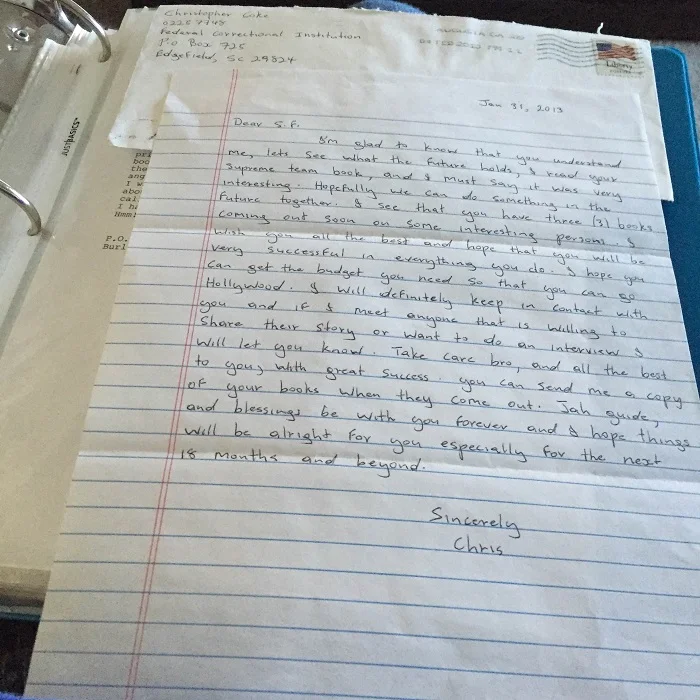 Christopher Coke
02257748
Federal Correctional Institution
P.O Box 725
Edgefield, SC 29824
Liberty
JUST BASICS
P.O.
Burl
Jan 31, 2013
Dear S.F.
I'm glad to know that you understand
me, lets see what the future holds, I read your
Supreme team book, and I must say it was very
interesting. Hopefully we can do something in the
future together. I see that you have three (3) books
coming out soon on some interesting persons. I
wish you all the best and hope that you will be
very successful in everything you do. I hope you
can get the budget you need so that you can go
Hollywood. I will definitely keep in contact with
you and if I meet anyone that is willing to
share their story or want to do an interview I
will let you know. Take care bro, and all the best
to you, with great success. you can send me a copy
of your books when they come out. Jah guide,
and blessings be with you forever and I hope things
will be alright for you especially for the next
18 months and beyond.
Sincerely
Chris